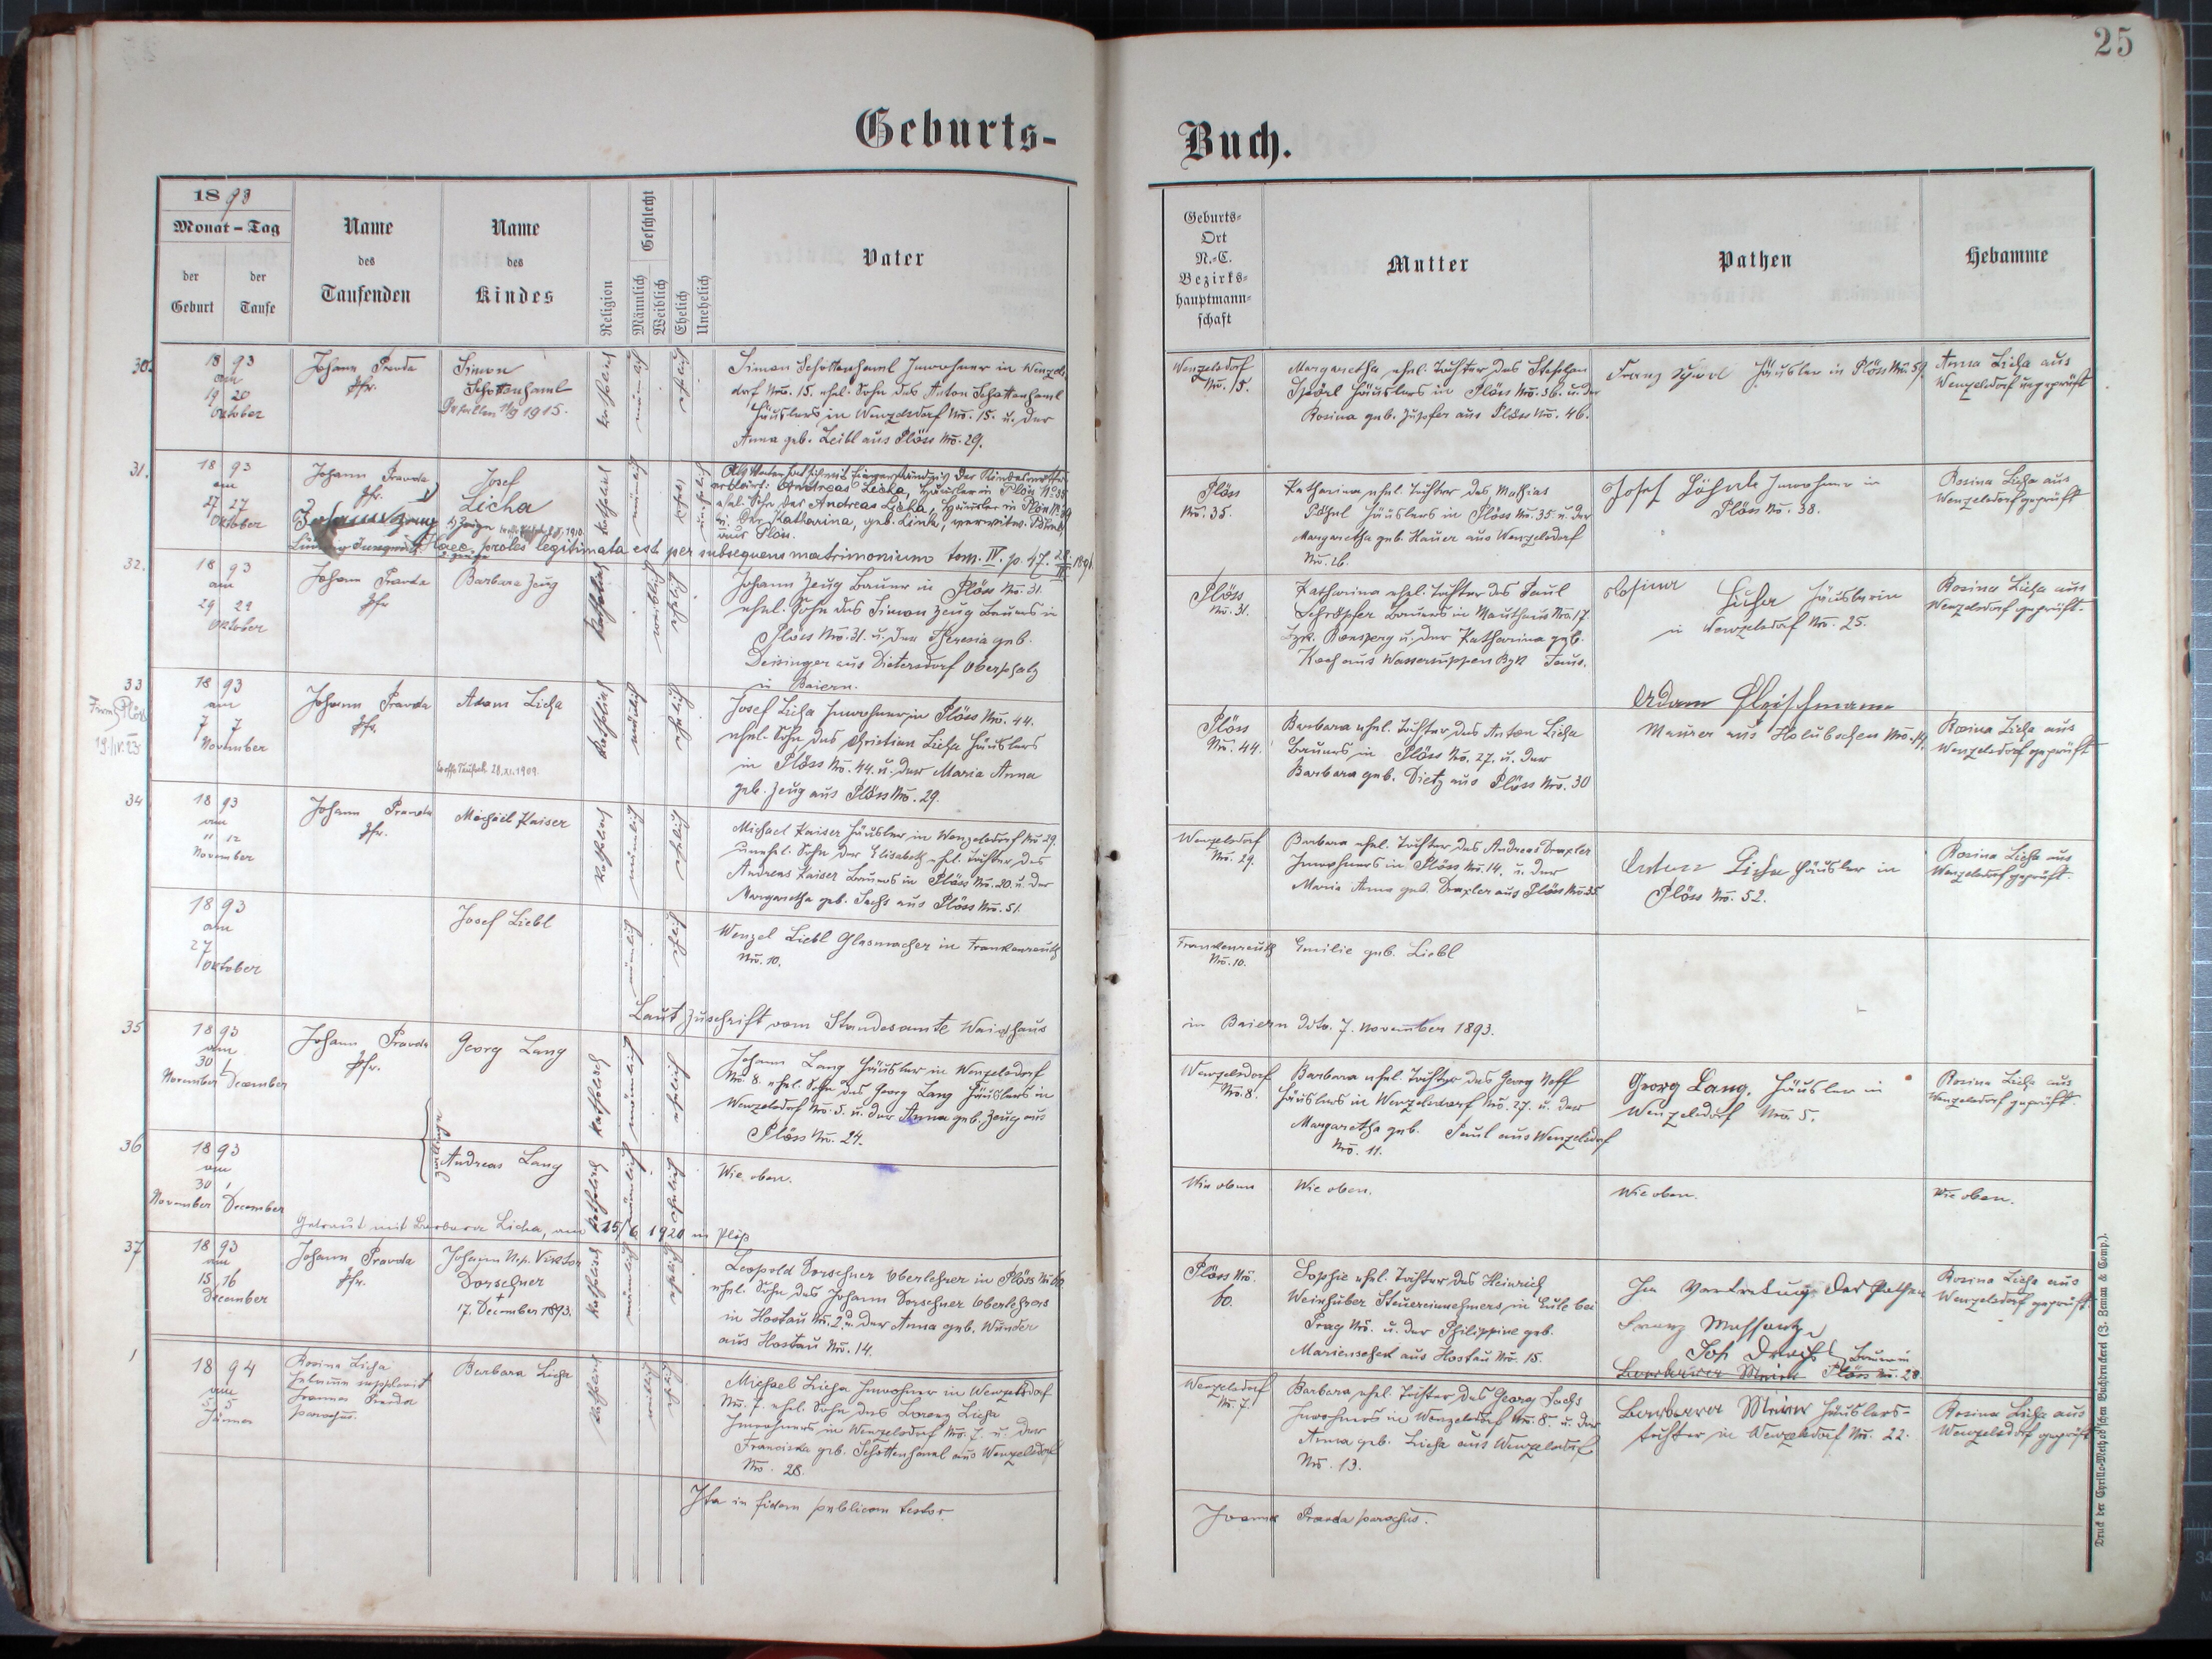 25
Geburts-
Buch.
1893
Monat - Tag
der Geburt
der Taufe
Name
des
Taufenden
Name
des
Kindes
Religion
Geschlecht
Männlich
Weiblich
Ehelich
Unehelich
Vater
Geburts-
Ort
N.-C.
Bezirks-
hauptmann-
schaft
Mutter
Pathen
Hebamme
30.
18 93
am
19 20
Oktober
Johann Pravda
Pfr.
Simon
Schottenhaml
Gefallen 11/9 1915.
katholisch
männlich
ehelich
Simon Schottenhaml Inwohner in Wenzels-
dorf Nro. 15. ehel. Sohn des Anton Schottenhaml
Häuslers in Wenzelsdorf Nro. 15. u. der
Anna geb. Leibl aus Plöss Nro. 29.
Wenzelsdorf
Nro. 15.
Margaretha ehel. Tochter des Stephan
Spörl Häuslers in Plöss Nro. 56. u. der
Rosina geb. aus Plöss Nro. 46.
Franz Häusler in Plöss Nro. 59.
Anna Licha aus
Wenzelsdorf ungeprüft
31.
18 93
am
27 27
Oktober
Johann Pravda
Pfr.
Josef
Licha
katholisch
männlich
unehelich
Als Vater hat sich mit Einverständnis der Kindesmutter
erklärt: Andreas Licha, Häusler in Plöss No 34
ehel. Sohn des Andreas Licha, Häusler in Plöss No 34
u. der Katharina, geb. Link, verwitw.
aus Plöss.
Johann Zeug
1) Zeuge
Haec proles legitimata est per subsequens matrimonium tom. IV. p. 47.
Plöss
Nro. 35.
Katharina ehel. Tochter des Mathias
Pöhnl Häuslers in Plöss Nro. 35 u. der
Margaretha geb. Hauer aus Wenzelsdorf
Nro. 26.
Josef Inwohner in
Plöss No. 38.
Rosina Licha aus
Wenzelsdorf geprüft
32.
18 93
am
29 29
Oktober
Johann Pravda
Pfr
Barbara Zeug
katholisch
weiblich
ehelich
Johann Zeug Bauer in Plöss No. 31.
ehel. Sohn des Simon Zeug Bauers in
Plöss Nro. 31. u. der Theresia geb.
Deisinger aus Dietersdorf Oberpfalz
in Baiern.
Plöss
Nro. 31.
Katharina ehel. Tochter des Paul
Schröpfer Bauers in Mauthaus Nro. 17.
Bzk. Ronsperg u. der Katharina geb.
Koch aus Wassersuppen Bzk Taus.
Rosina Licha Häuslerin
in Wenzelsdorf Nro. 25.
Rosina Licha aus
Wenzelsdorf geprüft.
33
Firm. Plöss
19./IV. 23.
18 93
am
7 7
November
Johann Pravda
Pfr.
Adam Licha
28.XI.1909.
katholisch
männlich
ehelich
Josef Licha Inwohner in Plöss No. 44.
ehel. Sohn des Christian Licha Häuslers
in Plöss No. 44. u. der Maria Anna
geb. Zeug aus Plöss No. 29.
Plöss
Nro. 44.
Barbara ehel. Tochter des Anton Licha
Bauers in Plöss No. 27. u. der
Barbara geb. Dietz aus Plöss Nro. 30
Adam Fleischmann
Maurer aus Holubschen Nro. 19.
Rosina Licha aus
Wenzelsdorf geprüft
34
18 93
am
11 12
November
Johann Pravda
Pfr.
Michael Kaiser
katholisch
männlich
ehelich
Michael Kaiser Häusler in Wenzelsdorf No 29.
unehel. Sohn der Elisabeth ehel. Tochter des
Andreas Kaiser Bauers in Plöss No. 20. u. der
Margaretha geb. Sachs aus Plöss Nro. 51.
Wenzelsdorf
Nro. 29.
Barbara ehel. Tochter des Andreas Drexler
Inwohners in Plöss Nro. 14. u. der
Maria Anna geb. Drexler aus Plöss Nro 35
Anton Licha Häusler in
Plöss No. 52.
Rosina Licha aus
Wenzelsdorf geprüft.
18 93
am
27
Oktober
Josef Liebl
männlich
ehelich
Wenzel Liebl Glasmacher in Frankenreuth
Nro. 10.
Frankenreuth
Nro. 10.
Emilie geb. Liebl
Laut Zuschrift vom Standesamte Waidhaus
in Baiern ddto. 7. November 1893.
35
18 93
am
30 1
November December
Johann Pravda
Pfr.
Georg Lang
katholisch
männlich
ehelich
Johann Lang Häusler in Wenzelsdorf
Nro. 8. ehel. Sohn des Georg Lang Häuslers in
Wenzelsdorf Nro. 5. u. der Anna geb. Zeug aus
Plöss Nr. 24.
Wenzelsdorf
Nro. 8.
Barbara ehel. Tochter des Georg Voff
Häuslers in Wenzelsdorf Nro. 27. u. der
Margaretha geb. Paul aus Wenzelsdorf
Nro. 11.
Georg Lang, Häusler in
Wenzelsdorf Nro. 5.
Rosina Licha aus
Wenzelsdorf geprüft.
36
18 93
am
30 1
November December
Zwillinge
Andreas Lang
katholisch
männlich
ehelich
Wie oben.
Wie oben
Wie oben.
Wie oben.
Wie oben.
Getraut mit Barbara Licha, am 15/6 1920 in Plöß
37
18 93
am
15 16
December
Johann Pravda
Pfr.
Johann Nep. Viktor
Dorschner
†
17. December 1893.
katholisch
männlich
ehelich
Leopold Dorschner Oberlehrer in Plöss No 60.
ehel. Sohn des Johann Dorschner Oberlehrers
in Hostau Nro. 2. u. der Anna geb. Wunder
aus Hostau Nro. 14.
Plöss Nro.
60.
Sophie ehel. Tochter des Heinrich
Weinhuber Steuereinnehmers in Eule bei
Prag No. u. der Philippine geb.
aus Hostau Nro. 15.
In Vertretung der Pathen
Franz
Joh
Barbara Meier
Bauer in
Plöss No. 28
Rosina Licha aus
Wenzelsdorf geprüft.
1
18 94
am
5 5
Jänner
Rosina Licha
supplevit
Joannes Pravda
parochus.
Barbara Licha
katholisch
weiblich
ehelich
Michael Licha Inwohner in Wenzelsdorf
Nro. 7. ehel. Sohn des Lorenz Licha
Inwohners in Wenzelsdorf Nro. 7. u. der
Franciska geb. Schottenhaml aus Wenzelsdorf
Nro. 28.
Wenzelsdorf
Nr. 7.
Barbara ehel. Tochter des Georg Sachs
Inwohners in Wenzelsdorf Nro. 8. u. der
Anna geb. Licha aus Wenzelsdorf
Nro. 13.
Barbara Meier Häuslers-
tochter in Wenzelsdorf Nro. 22.
Rosina Licha aus
Wenzelsdorf geprüft
Ita in fidem publicam testor.
Joannes Pravda parochus.
Druck der Cyrillo-Method'schen Buchdruckerei (J. Zeman & Comp.).